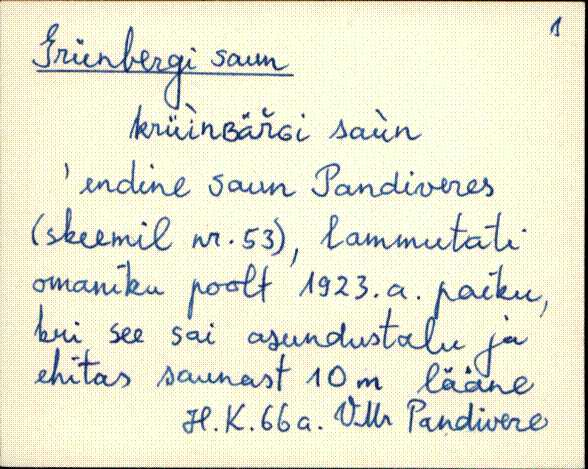 1
Grünbergi saun
krüìnʙäřɢi saùn
'endine saun Pandiveres
(skeemil nr. 53), lammutati
omaniku poolt 1923. a. paiku,
kui see sai asundustalu ja
ehitas saunast 10 m lääne
H.K. 66 a. VMr Pandivere